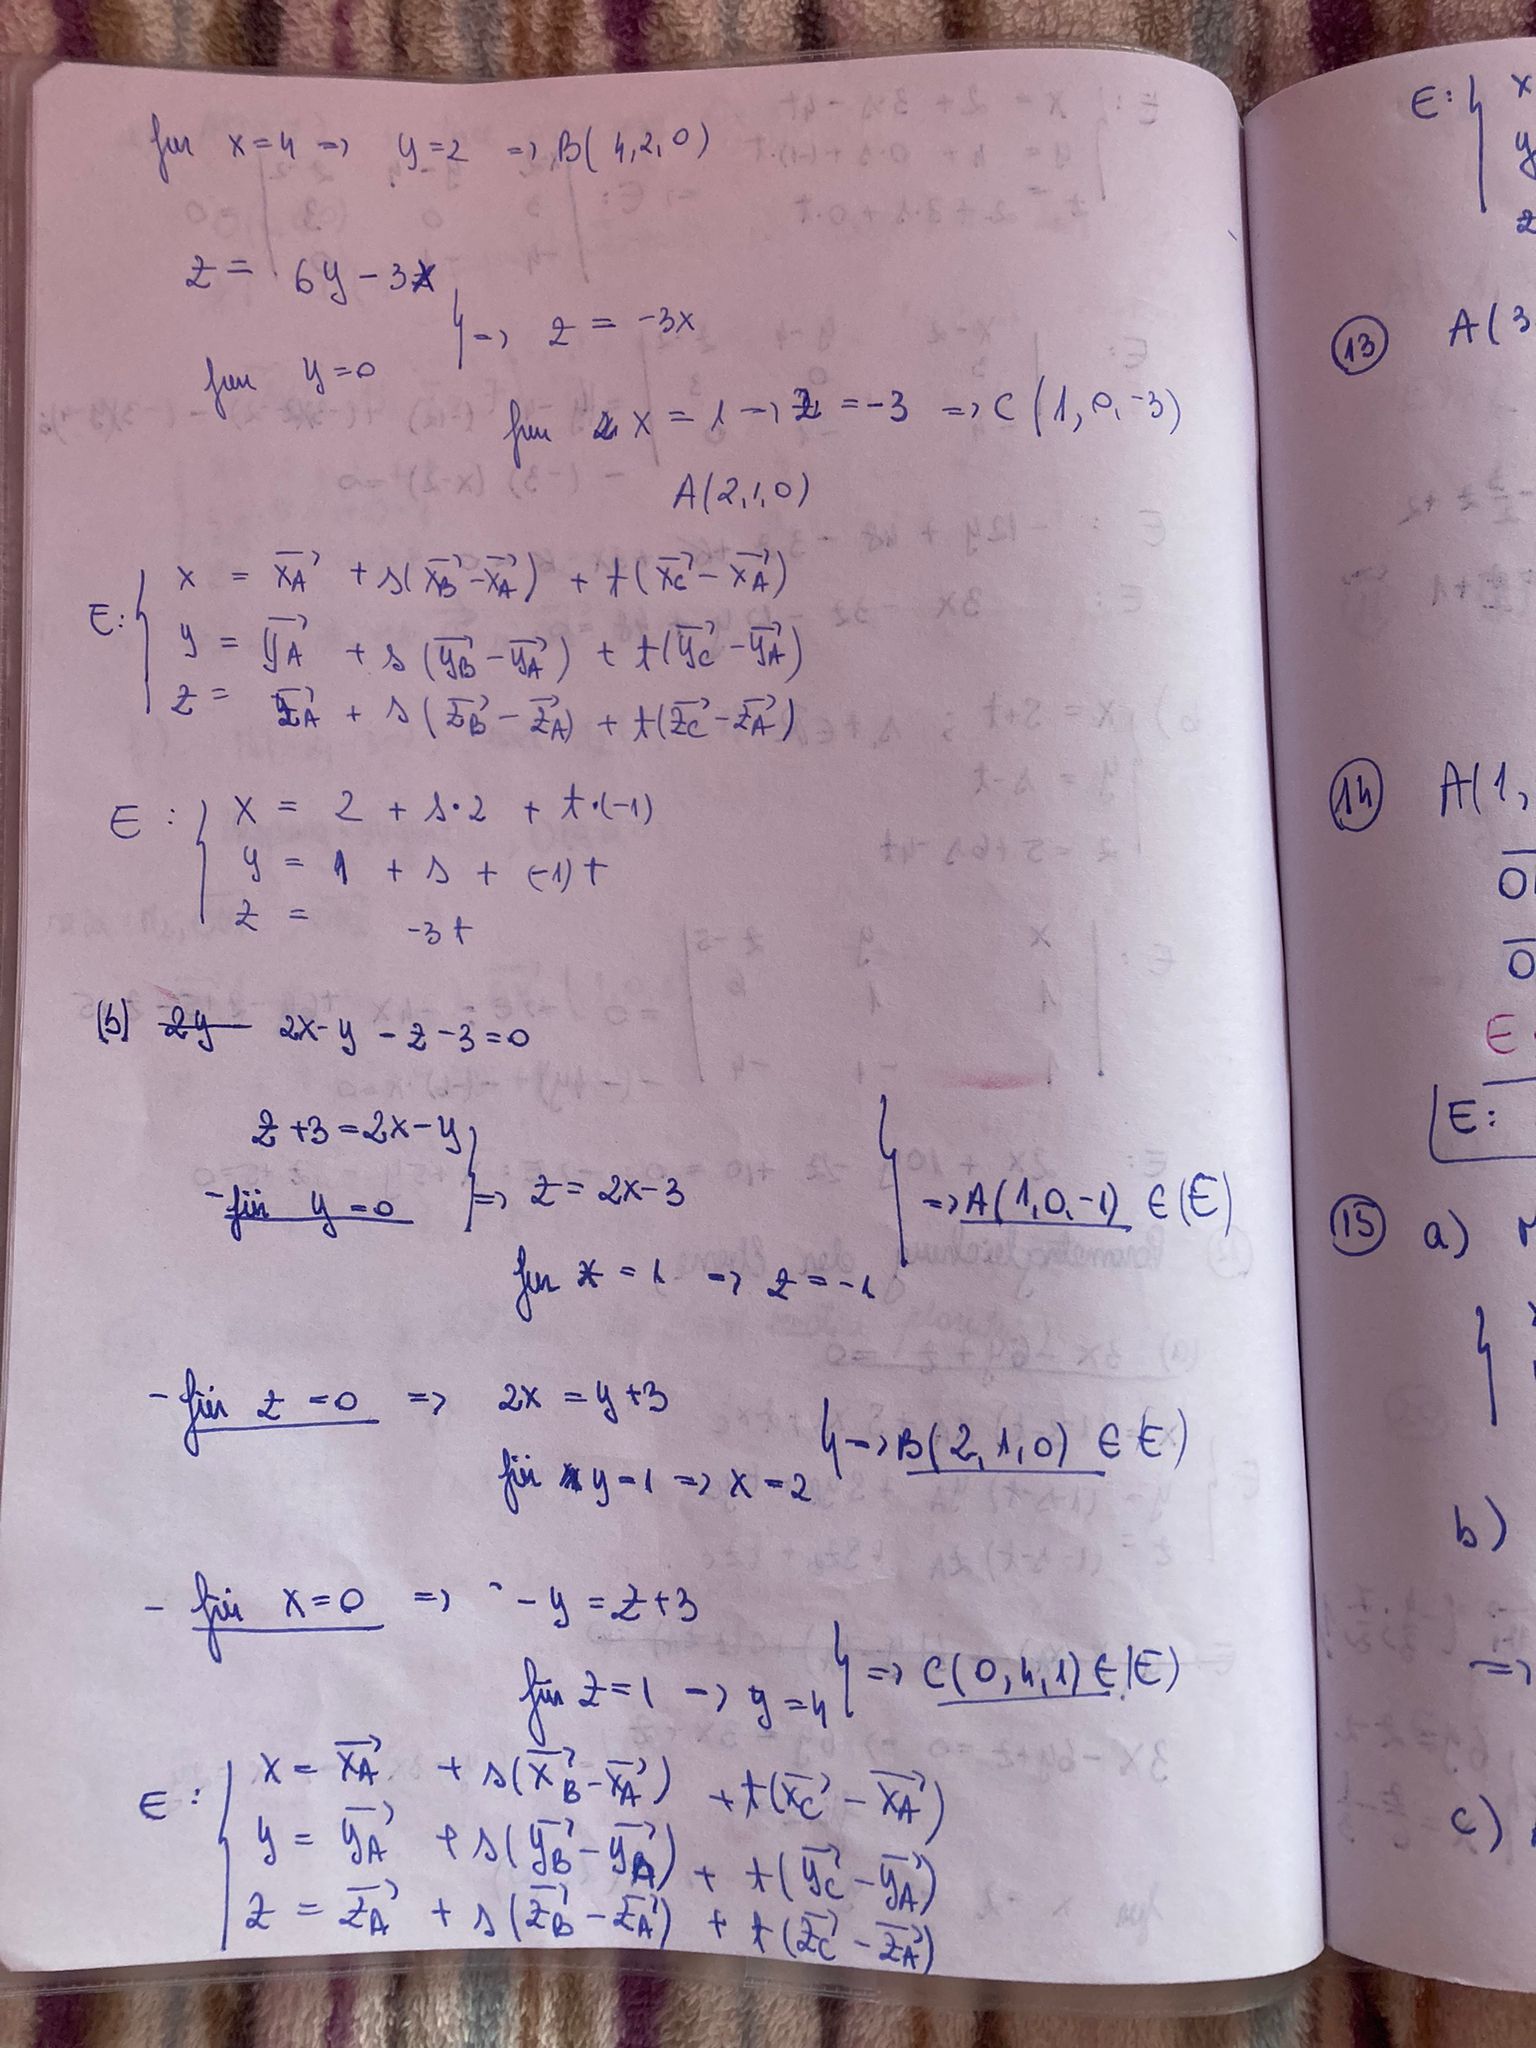 für x=4 => y=2 => B(4,2,0)
z = 6y-3x
für y=0
=> z = -3x
für x = 1 => z = -3 => C(1,0,-3)
A(2,1,0)
E: { x = xA + s(xB-xA) + t(xC-xA)
y = yA + s(yB-yA) + t(yC-yA)
z = zA + s(zB-zA) + t(zC-zA)
E: { x = 2 + s·2 + t·(-1)
y = 1 + s + (-1)t
z = -3t
(b) 2y 2x-y-z-3=0
z+3=2x-y
- für y=0 => z=2x-3
=> A(1,0,-1) ∈(E)
für x=1 => z=-1
- für z=0 => 2x=y+3
=> B(2,1,0) ∈ (E)
für y=1 => x=2
- für x=0 => -y=z+3
für z=1 => y=4 => C(0,4,1) ∈ (E)
E: { x = xA + s(xB-xA) + t(xC-xA)
y = yA + s(yB-yA) + t(yC-yA)
z = zA + s(zB-zA) + t(zC-zA)
E: { x
y
z
13 A(3
14 A(1,
E:
15 a)
b)
=>
c)